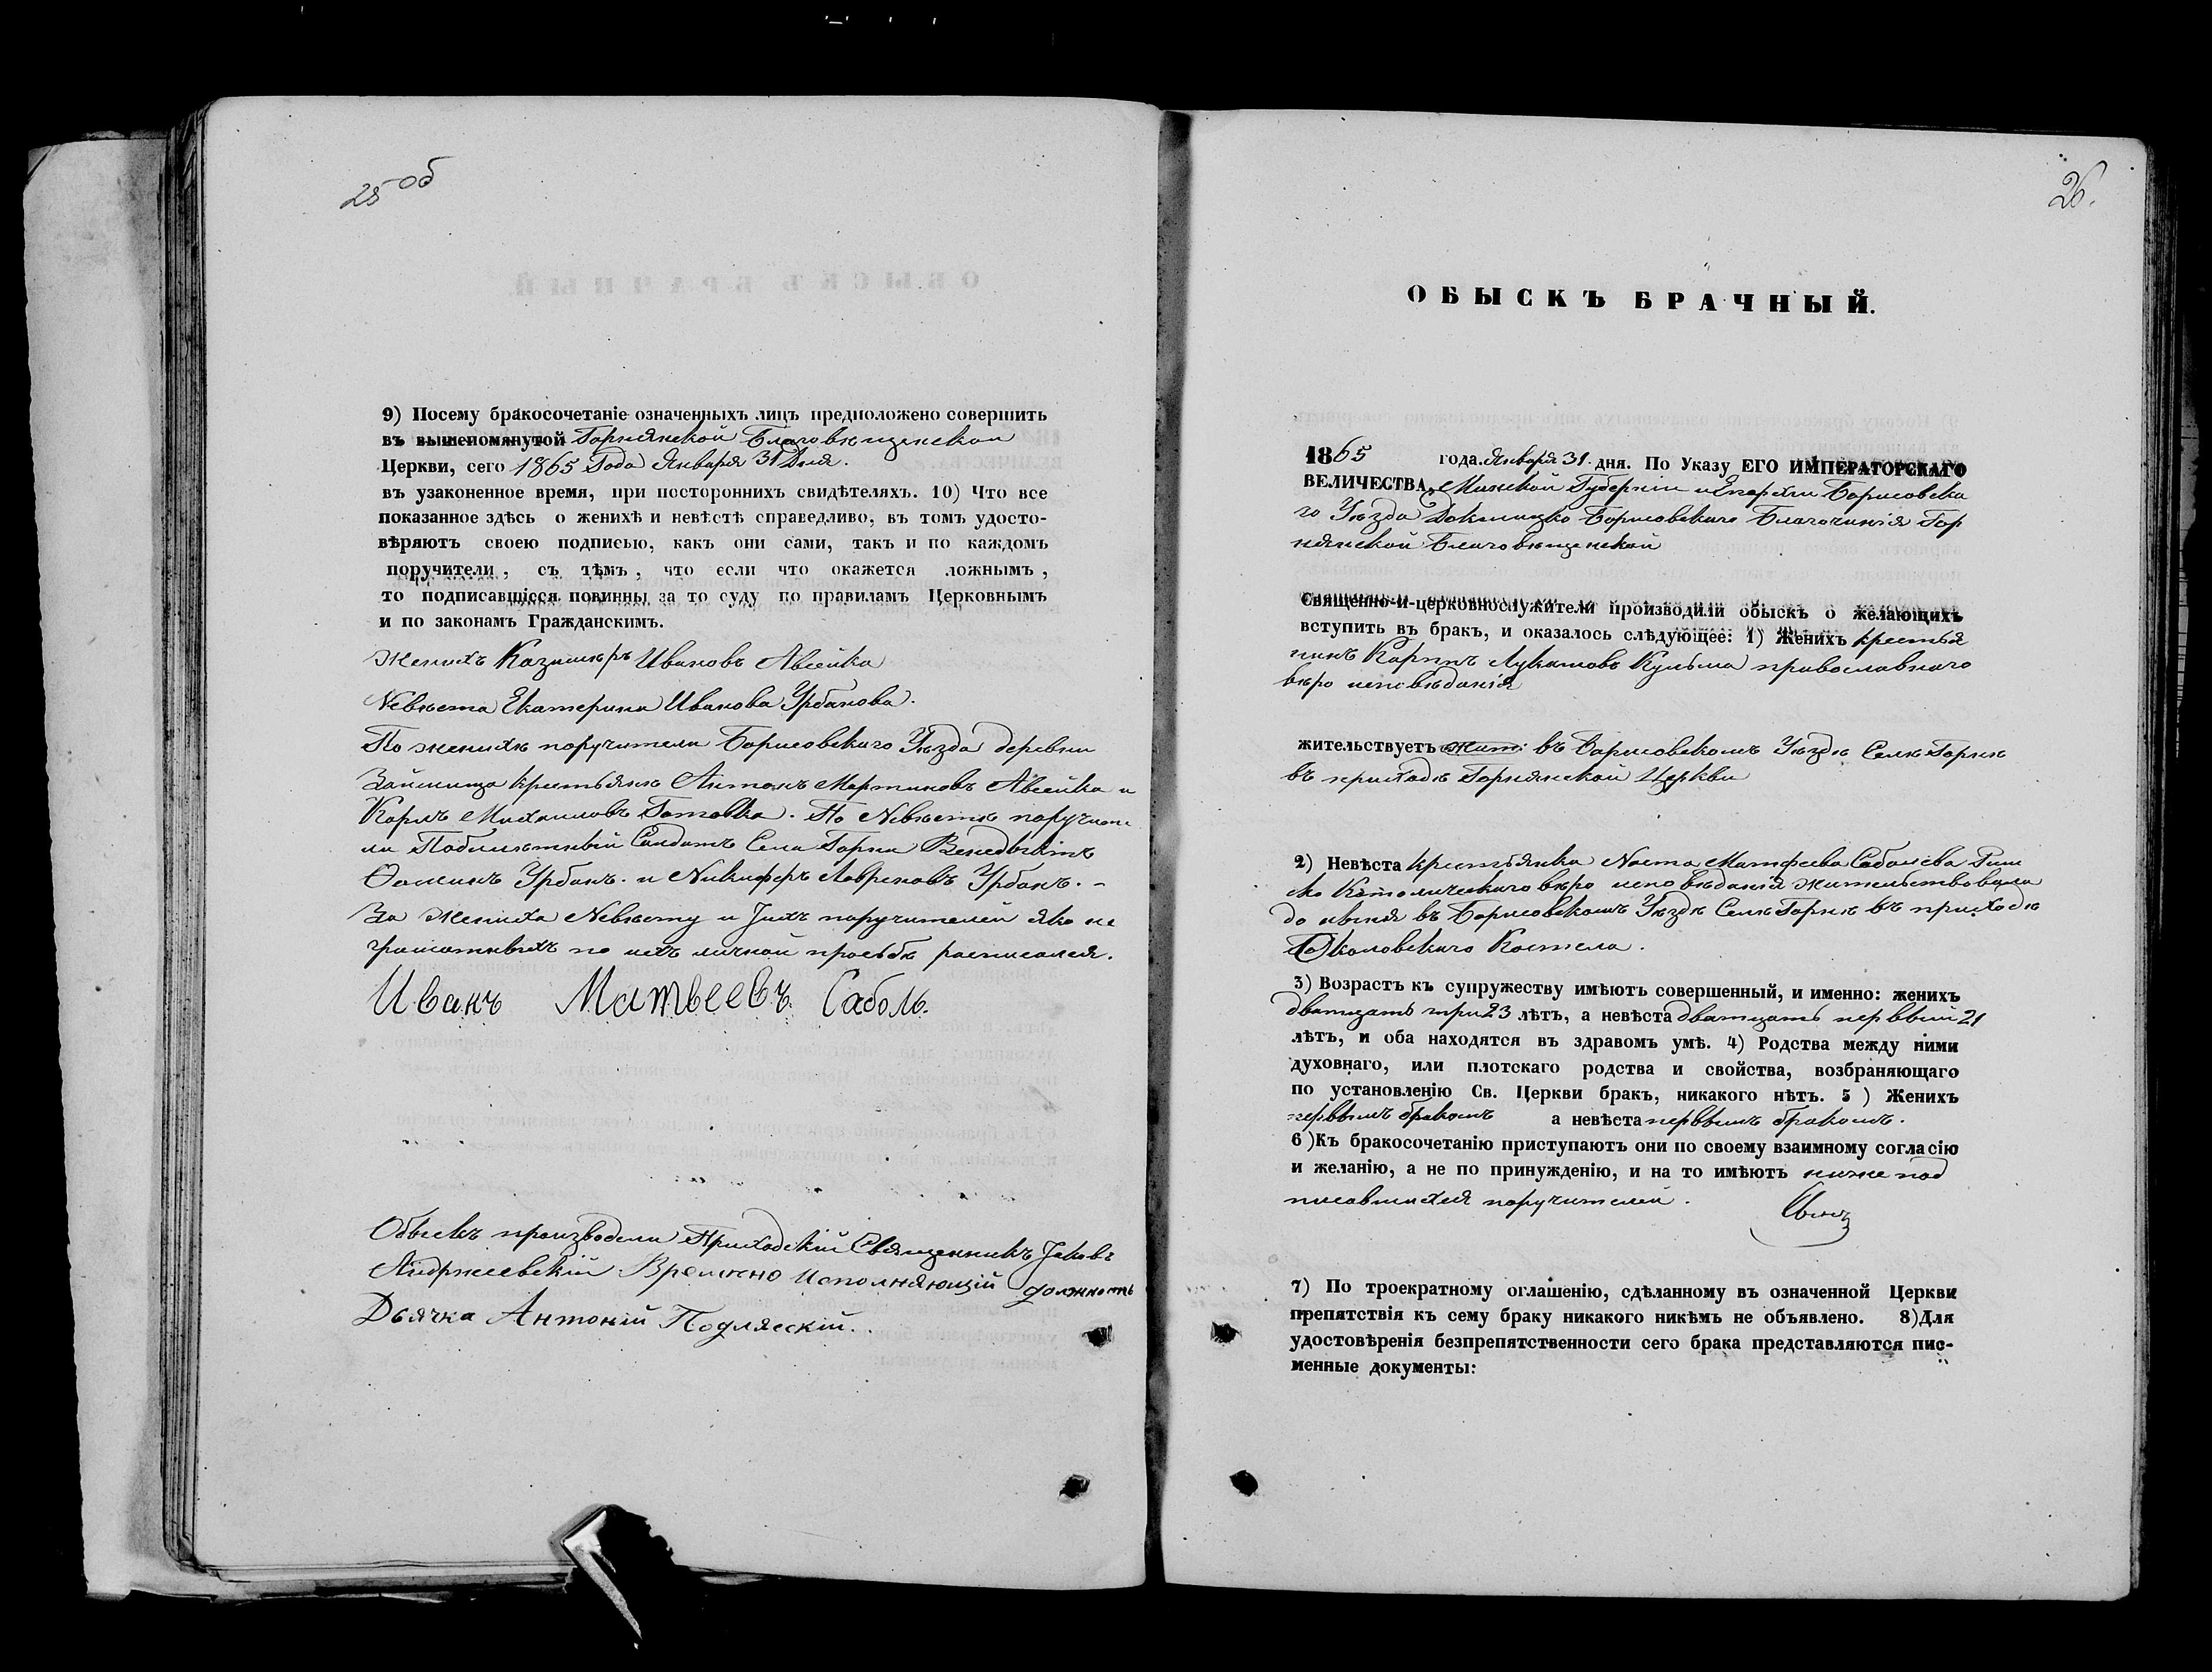 25 об
9) Посему бракосочетаніе означенныхъ лицъ предположено совершить
въ вышепомянутой Горнянской Благовѣщенской
Церкви, сего 1865 Года Января 31 Дня.
въ узаконенное время, при постороннихъ свидѣтеляхъ. 10) Что все
показанное здѣсь о женихѣ и невѣстѣ справедливо, въ томъ удосто-
вѣряютъ своею подписью, какъ они сами, такъ и по каждомъ
поручители, съ тѣмъ, что если что окажется ложнымъ,
то подписавшіеся повинны за то суду по правиламъ Церковнымъ
и по законамъ Гражданскимъ.
Женихъ Казимѣръ Ивановъ Авсейка
Невѣста Екатерина Иванова Урбанова.
По женихѣ поручители Борисовскаго Уѣзда деревни
Займища крестьяне Антонъ Мартиновъ Авсейка и
Карлъ Михаиловъ Готовка. По Невѣстѣ поручите
ли Побилетный Солдатъ Села Горни Венедыктъ
Ѳоминъ Урбанъ. и Никифоръ Лавреновъ Урбанъ. -
За Жениха Невѣсту и Ихъ поручителей яко не
грамотныхъ по ихъ личной просьбѣ росписался.
Иванъ Матвеевъ Саболь.
Обыскъ производили Приходскій Священникъ Іаковъ
Андржеевскій Времѣнно Исполняющій должность
Дьячка Антоній Подляскій.
26.
ОБЫСКЪ БРАЧНЫЙ.
1865 года Января 31 дня. По Указу ЕГО ИМПЕРАТОРСКАГО
ВЕЛИЧЕСТВА, Минской Губерніи и Епархіи Борисовска
го Уѣзда Докшицко Борисовскаго Благочинія Гор
нянской Благовѣщенской
Священно-и-церковнослужители производили обыскъ о желающихъ
вступить въ бракъ, и оказалось слѣдующее: 1) Женихъ крестья
нинъ Карпъ Лукашовъ Кульма православнаго
вѣро исповѣданія
жительствуетъ въ Борисовскомъ Уѣздѣ Селѣ Горнѣ
въ приходѣ Горнянской Церкви
2) Невѣста крестьянка Наста Матфеева Саболева Рим
ско Католическаго вѣро исповѣданія жительствовала
до ныня въ Борисовскомъ Уѣздѣ Селѣ Горнѣ въ приходѣ
Околовскаго Костела.
3) Возрастъ къ супружеству имѣютъ совершенный, и именно: женихъ
дватцать три 23 лѣтъ, а невѣста дватцать первый 21
лѣтъ, и оба находятся въ здравомъ умѣ. 4) Родства между ними
духовнаго, или плотскаго родства и свойства, возбраняющаго
по установленію Св. Церкви бракъ, никакого нѣтъ. 5) Женихъ
первымъ бракомъ а невѣста первымъ бракомъ.
6)Къ бракосочетанію приступаютъ они по своему взаимному согласію
и желанію, а не по принужденію, и на то имѣютъ ниже под
писавшихся поручителей.
7) По троекратному оглашенію, сдѣланному въ означенной Церкви
препятствія къ сему браку никакого никѣмъ не объявлено. 8)Для
удостовѣренія безпрепятственности сего брака представляются пис-
менные документы: